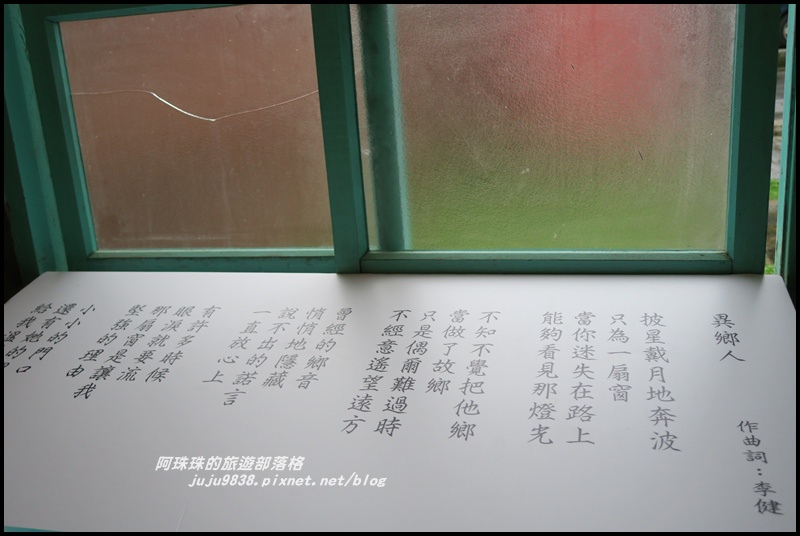 異鄉人
作曲詞：李健
披星戴月地奔波
只為一扇窗
當你迷失在路上
能夠看見那燈光
不知不覺把他鄉
當做了故鄉
只是偶爾難過時
不經意遙望遠方
曾經的鄉音
悄悄地隱藏
說不出的諾言
一直放心上
有許多時候
眼淚就要流
那扇窗是讓我
堅強的理由
小小的門口
還有她的
給我溫
阿珠珠的旅遊部落格
juju9838.pixnet.net/blog